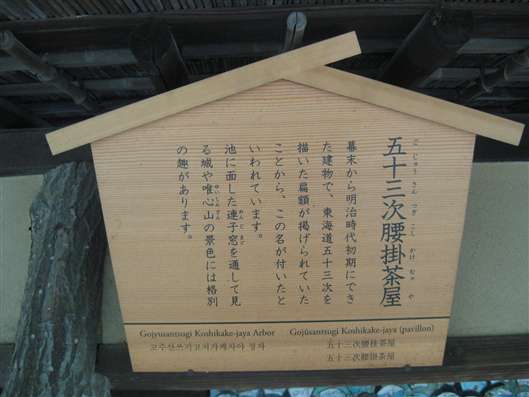 ご じゅう さん つぎ こし かけ ぢゃ や
五十三次腰掛茶屋
幕末から明治時代初期にでき
た建物で、東海道五十三次を
描いた扁額が掲げられていた
ことから、この名が付いたと
いわれています。
池に面した連子窓を通して見
る城や唯心山の景色には格別
の趣があります。
Gojyusantsugi Koshikake-jaya Arbor
고주산쓰기고시카케자야 정자
Gojūsantsugi Koshikake-jaya (pavilion)
五十三次腰挂茶屋
五十三次腰掛茶屋